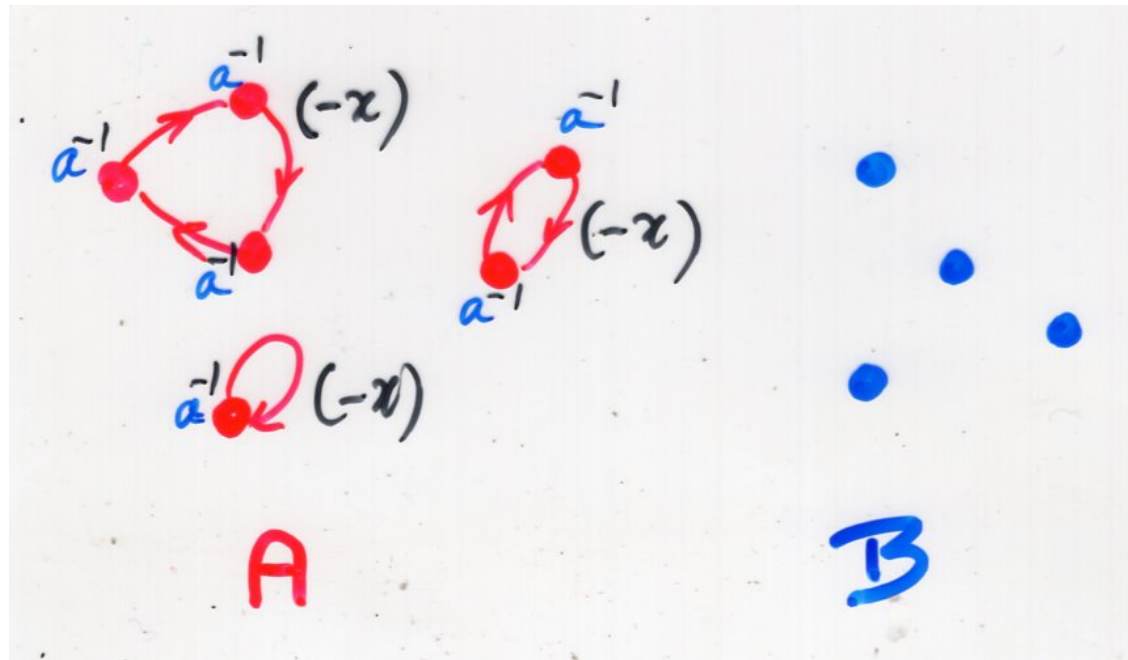 a⁻¹
(-x)
a⁻¹
a⁻¹
a⁻¹
(-x)
a⁻¹
a⁻¹
(-x)
A
B